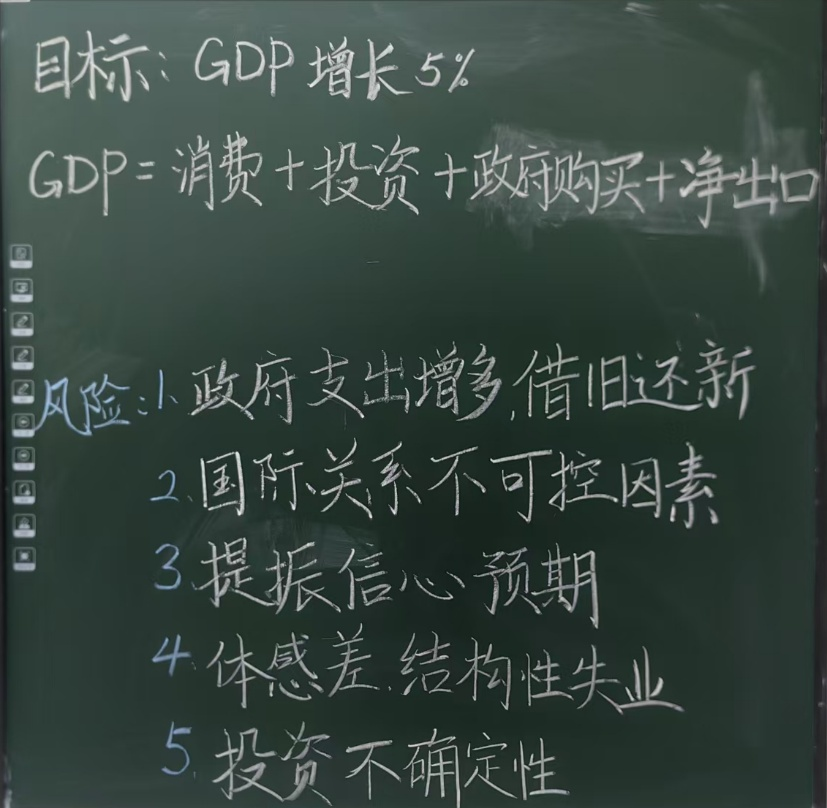 目标：GDP 增长 5%
GDP = 消费 + 投资 + 政府购买 + 净出口
风险：1、政府支出增多，借旧还新
2、国际关系不可控因素
3、提振信心预期
4、体感差、结构性失业
5、投资不确定性